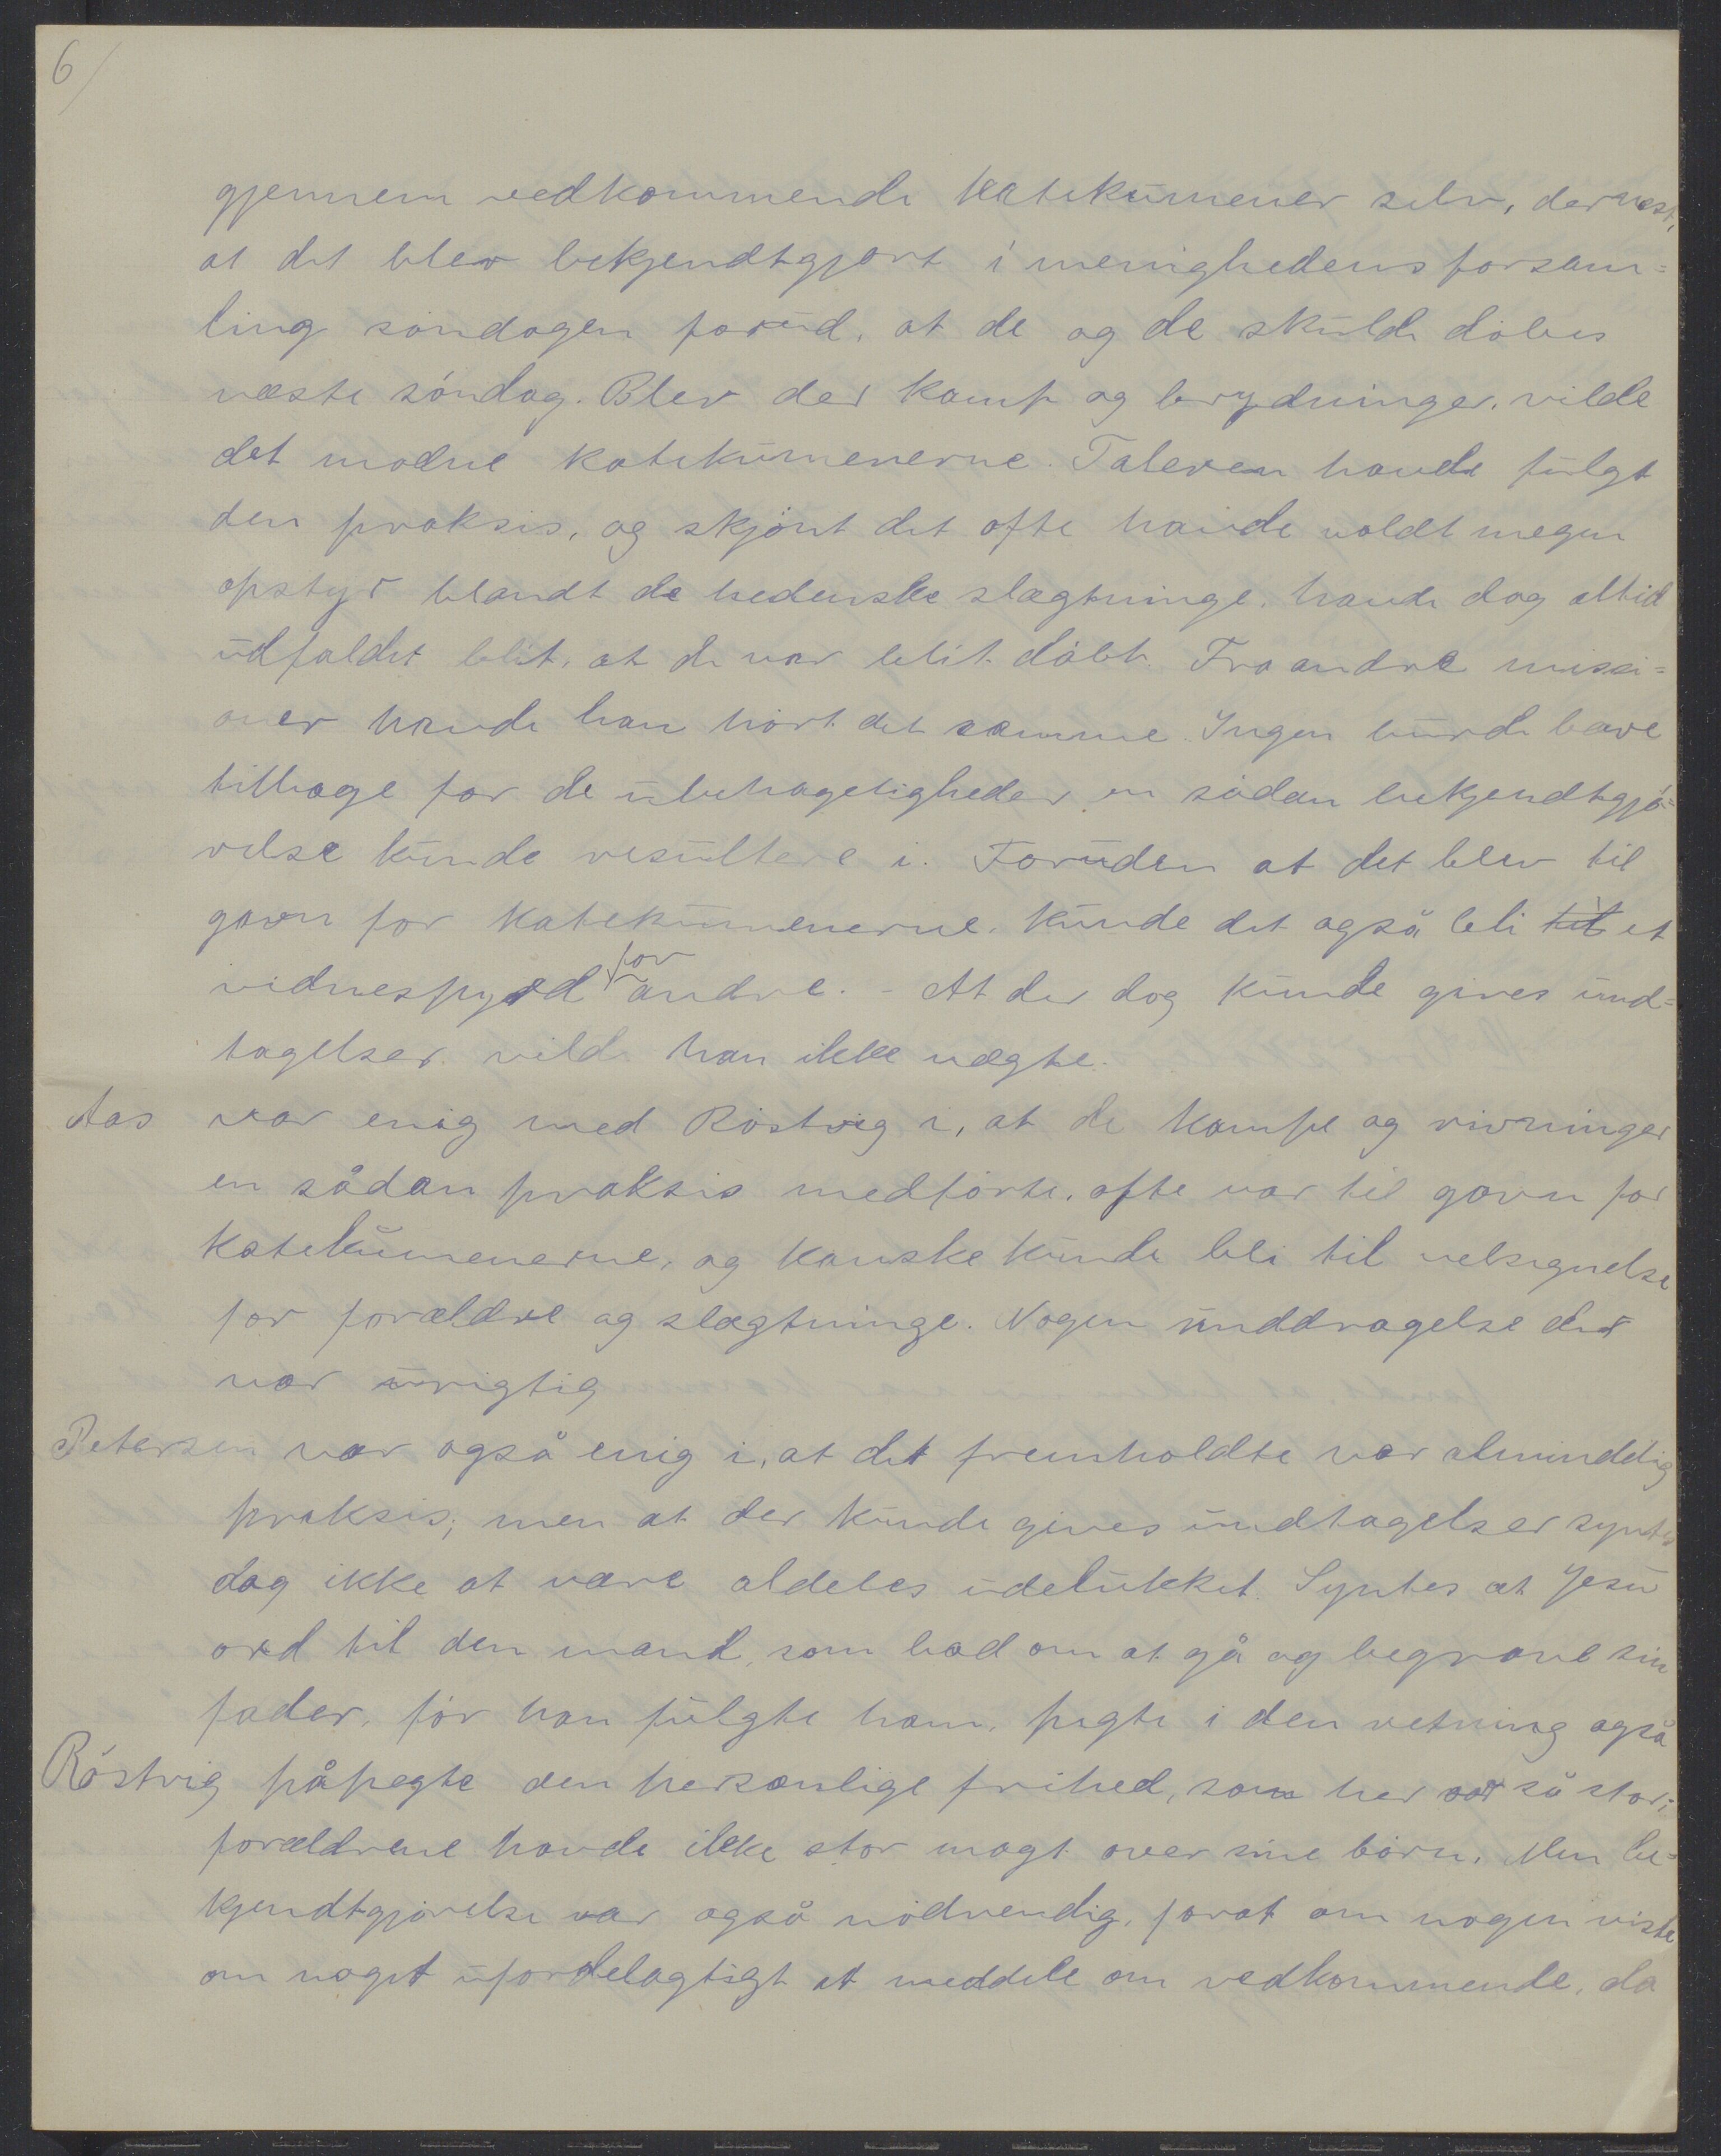 6/
gjennem vedkommende katekumener selv, dernæst,
at det blev bekjendtgjort i menighedens forsam=
ling søndagen forud, at de og de skulde døbes
næste søndag. Blev der kamp og brydninger, vilde
det modne katekumenerne. Taleren havde fulgt
den praksis, og skjønt det ofte havde voldt megen
opstyr blandt de hedenske slægtninge, havde dog altid
udfaldet blit, at de var blit døbt. Fra andre missi=
oner havde han hørt det samme. Ingen burde bæve
tilbage for de ubehageligheder en sådan bekjendtgjø=
relse kunde resultere i. Foruden at det blev til
gavn for katekumenerne, kunde det også bli til et
vidnespyrd for andre. - At der dog kunde gives und=
tagelser vilde han ikke nægte.
Aas var enig med Røstvig i, at de kampe og rivninger
en sådan praksis medførte, ofte var til gavn for
katekumenerne, og kanske kunde bli til velsignelse
for forældre og slægtninge. Nogen unddragelse der
var urigtig
Petersen var også enig i, at det fremholdte var almindelig
praksis; men at der kunde gives undtagelser syntes
dog ikke at være aldeles udelukket. Syntes at Jesu
ord til den mand, som bad om at gå og begrave sin
fader, før han fulgte ham, pegte i den retning også
Røstvig påpegte den personlige frihed, som her var så stor;
forældrene havde ikke stor magt over sine børn. Men be=
kjendtgjørelse var også nødvendig, forat om nogen viste
om noget ufordelagtigt at meddele om vedkommende, da